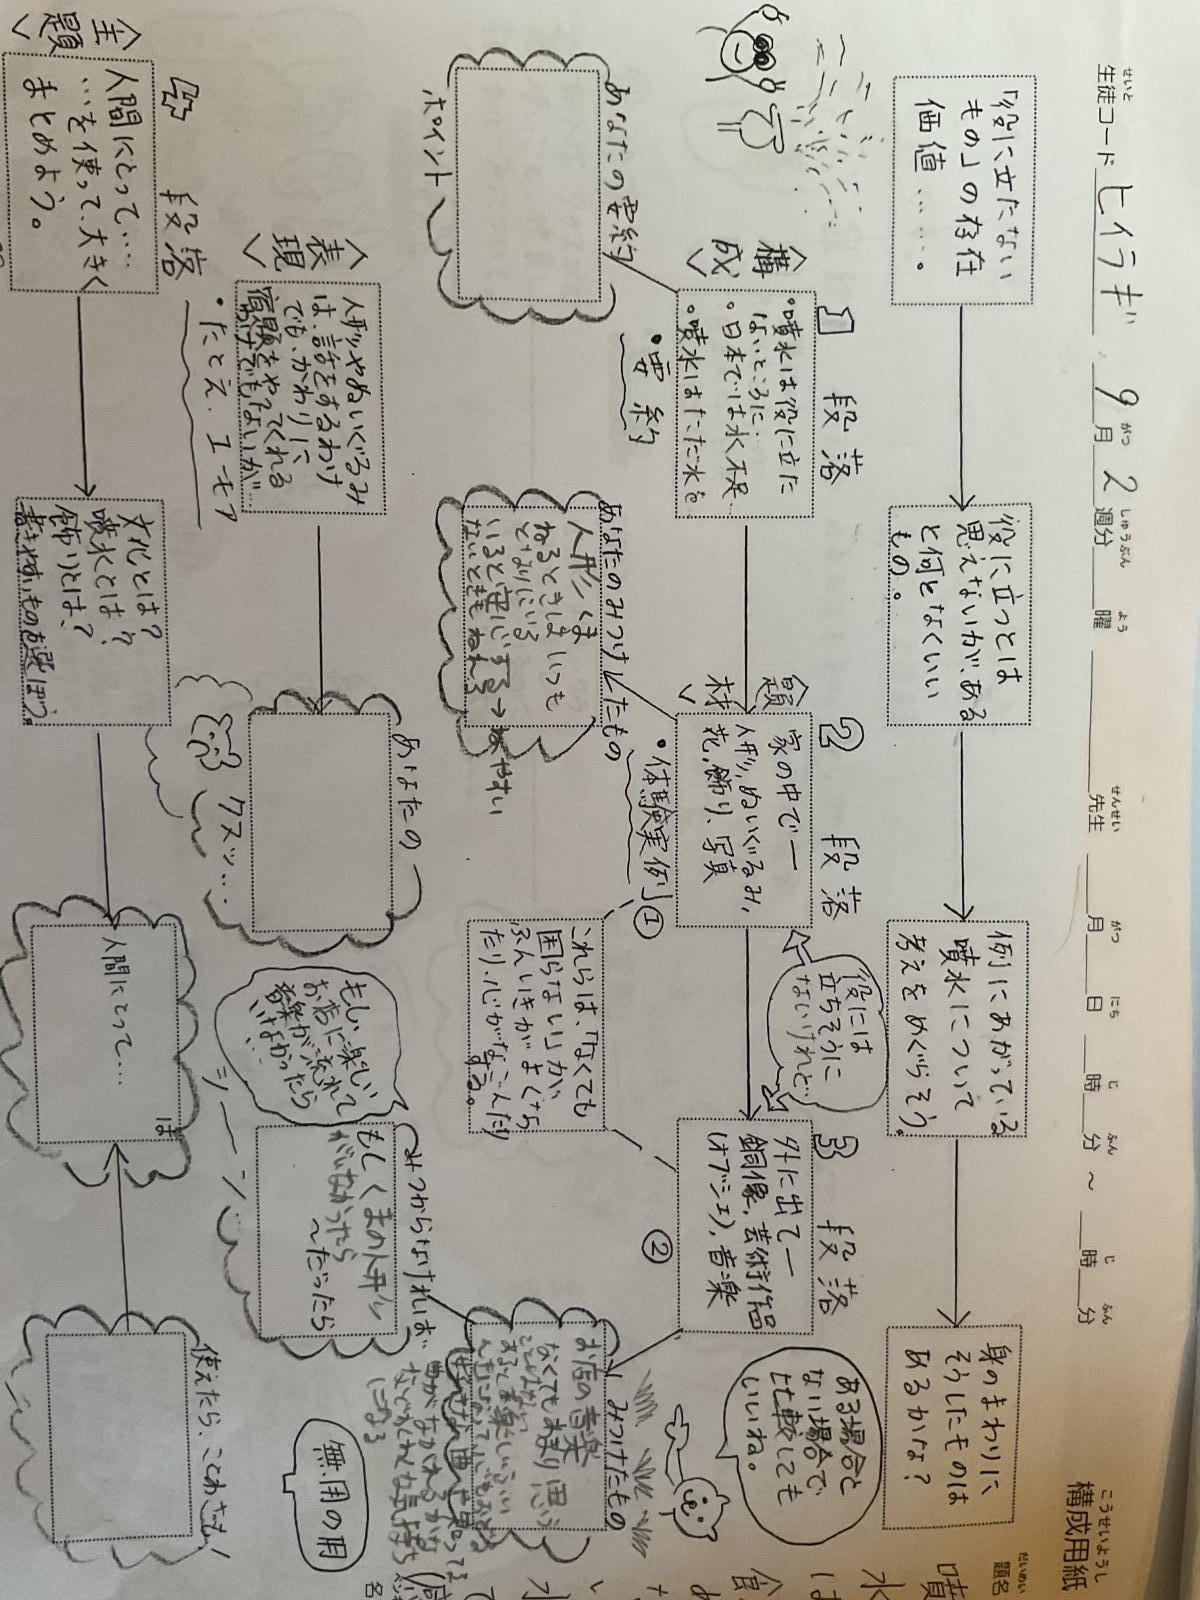 構成用紙
こうせいようし
題名
だいめい
生徒コード ヒイラギ 9月 2週分 曜 先生 月 日 時 分 ~ 時 分
せいと がつ しゅうぶん よう せんせい がつ にち じ ふん じ ふん
「役に立たない
もの」の存在
価値……。
役に立つとは
思えないが、ある
と何となくいい
もの。
例にあがっている
噴水について
考えをめぐらそう。
身のまわりに
そうしたものは
あるかな?
1 段落
〈構成〉
・噴水は役に立た
ないところに…
・日本では水不足…
・噴水はただ水を
・要約
あなたの要約
ポイント
2 段落
〈題材〉
家の中で―
人形、ぬいぐるみ、
花、飾り、写真
・体験実例 ①
あなたのみつけたもの
人形 くま
ねるときは いつも
となりにいる
いると安心する→ねやすい
ないときもねれる
役には
立ちそうに
ないけれど…
これらは、「なくても
困らない」が、
ふんいきがよくなっ
たり、心がなごんだり
する。
3 段落
外に出て―
銅像、芸術作品
(オブジェ)、音楽
②
ある場合と
ない場合で
比較しても
いいね。
みつけたもの
お店の音楽
なくてもあまり思う
みつからなければ…
もしくまの人形
がいなかったら
~だったら
もし、楽しい
お店に音楽が流れて
いなかったら
…
シーン…
〈表現〉
人形やぬいぐるみ
は、話をするわけ
でも、かわりに
宿題をやってくれる
わけでもないが…
・たとえ・ユーモア
あなたの
クスッ…
無用の用
4 段落
〈主題〉
人間にとって…
…を使って、大きく
まとめよう。
文化とは?
噴水とは?
飾りとは?
書きやすいものを選ぼう。
人間にとって…
は
使えたら、ことわざも!